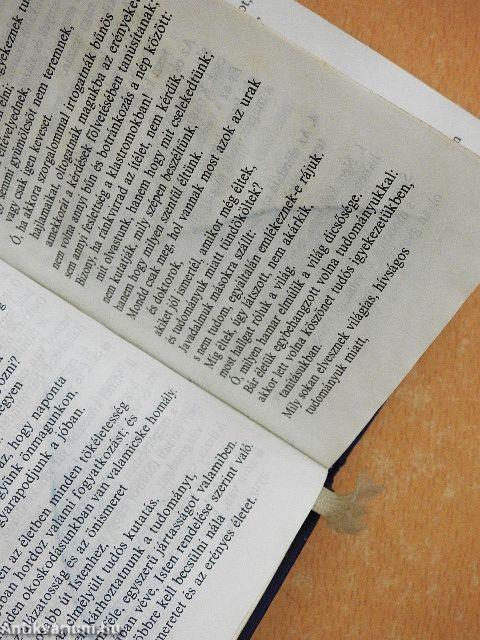 gyekeznek tu
elni:
tévelyegnek,
semmi gyümölcsöt nem teremnek,
vagy csak igen keveset.
Ó, ha akkora szorgalommal irtogatnák bűnös
hajlamaikat, oltogatnák magukba az erényeket,
amekkorát a kérdések fölvetésében tanúsítanak;
nem volna annyi bűn és botránkozás a nép között;
sem annyi feslettség a klastromokban!
Bizony, ha ránkvirrad az ítélet, nem kérdik,
mit olvastunk, hanem hogy mit cselekedtünk;
nem kutatják, mily szépen beszéltünk,
hanem hogy milyen szentül éltünk.
Mondd csak meg, hol vannak most azok az urak
és doktorok,
akiket jól ismertél, amikor még éltek,
és tudományuk miatt tündököltek?
Javadalmuk másokra szállt:
s nem tudom, egyáltalán emlékeznek-e rájuk.
Míg éltek, úgy látszott, nem akárkik,
most hallgat róluk a világ.
Ó milyen hamar elmúlik a világ dicsősége.
Bár életük egybehangzott volna tudományukkal:
akkor lett volna köszönet tudós igyekezetükben,
tanításukban.
Mily sokan elvesznek világias, hívságos
tudományuk miatt,
az, hogy naponta
gyünk önmagunkon,
gyarapodjunk a jóban.
en az életben minden tökéletesség
ában hordoz valami fogyatkozást: és
den okoskodásunkban van valamicske homály.
ázatosság és az önismeret
bb út Istenhez,
mélyült tudós kutatás.
kárhozhatnunk a tudományt,
de, egyszerű jártasságot valamiben.
an véve, Isten rendelése szerint való.
öbbre kell becsülni nála
meretet és az erényes életet.
Antikvarium.hu